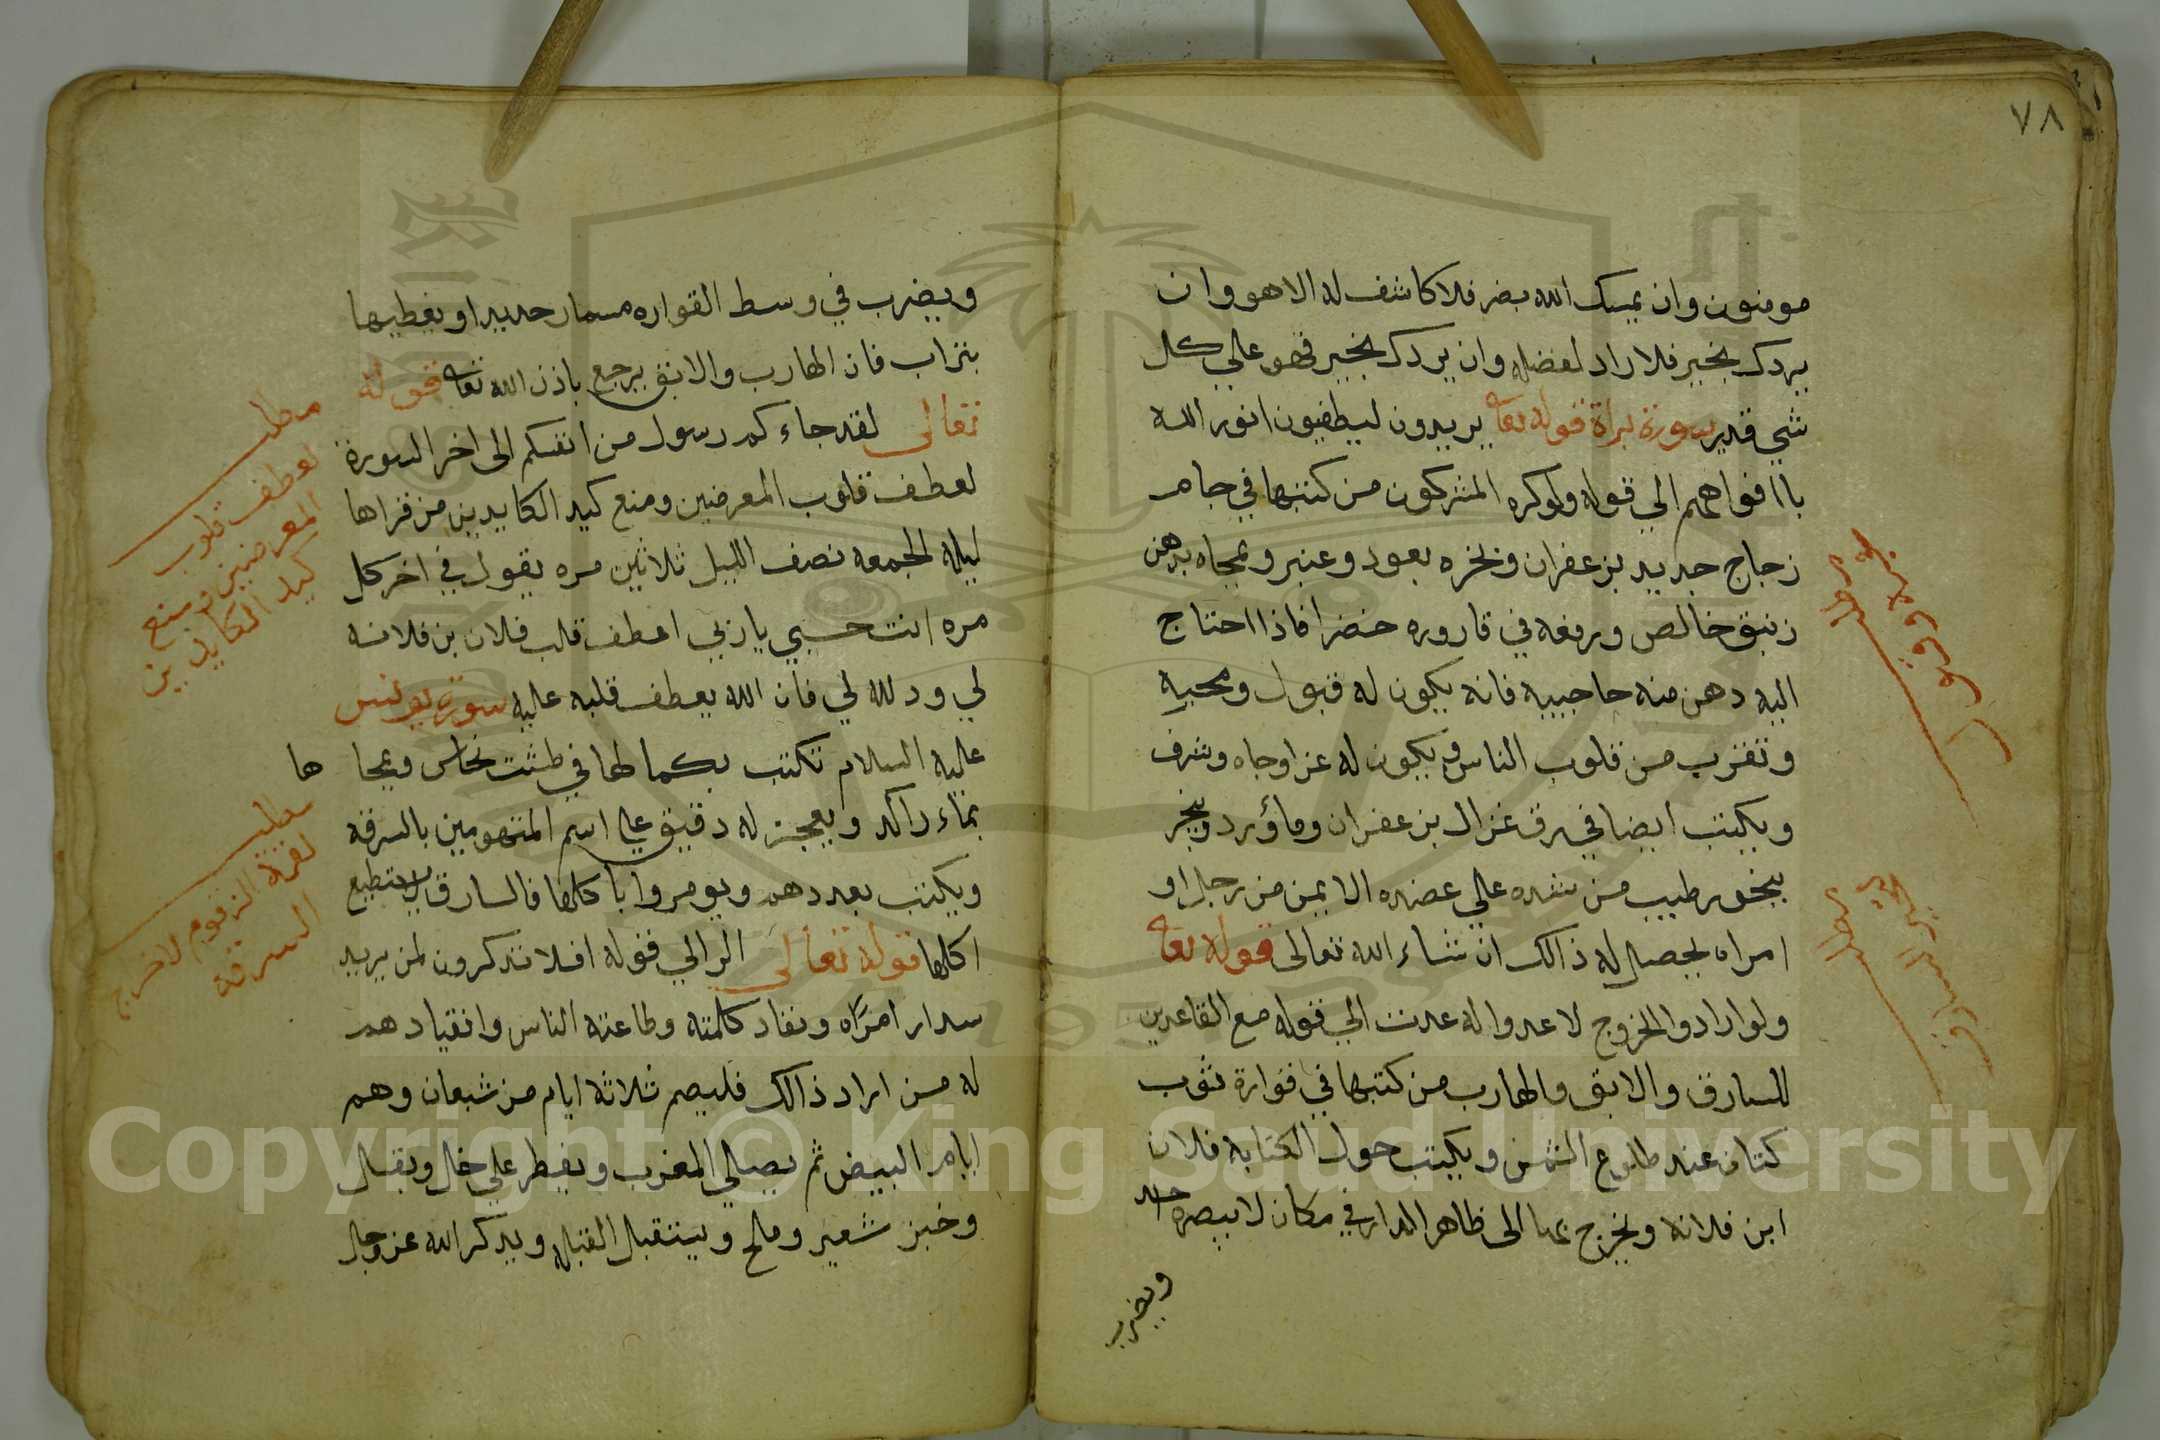 ٧٨
مومنون وان يمسك الله بضر فلا كاشف له الا هو وان
يردك بخير فلا راد لفضله وان يردك بخير فهو علي كل
شي قدير سورة براة قوله تعا يريدون ليطفيون انور الله
باافواههم الي قوله ولوكره المشركون من كتبها في جام
زجاج جديد بزعفران وبخره بعود وعنبر ومجاه بدهن
زنبق خالص ورفعه في قاروره خضرا فاذا احتاج
اليه دهن منه حاجبيه فانه يكون له قبول ومحبه
وتقرب من قلوب الناس ويكون له عزا وجاه وشرف
ويكتب ايضا في رق غزال بزعفران وماؤرد وبخر
ببخور طيب من شده علي عضده الايمن من رجل او
امراه يحصل له ذالك ان شاء الله تعالى قوله تعا
ولو ارادوا الخروج لاعدوا له عدت الي قوله مع القاعدين
للسارق والابق والهارب من كتبها في قوارة ثوب
كتان عند طلوع الشمس ويكتب حول الكتابه فلان
ابن فلانه ويخرج بها الى ظاهر الدار في مكان لا يبصره احد
ويضرب
مطلب
مطلب
ويضرب في وسط القواره مسمار حديد او يغطيها
بتراب فان الهارب والابق يرجع باذن الله تعا قوله
تعالى لقد جاءكم رسول من انفسكم الى اخر السورة
لعطف قلوب المعرضين ومنع كيد الكايدين من قراها
ليلة الجمعه نصف الليل ثلاثين مره يقول في اخر كل
مره انت حسبي يا ربي اعطف قلب فلان بن فلانه
لي وذلله لي فان الله يعطف قلبه عليه سورة يونس
عليه السلام تكتب بكمالها في طشت نحاس ويمحا ها
بماء راكد ويعجن له دقيق علي اسم المتهومين بالسرقه
ويكتب بعددهم ويومروا باكلها فالسارق لا يستطيع
اكلها قوله تعالى الر الي قوله افلا تذكرون لمن يريد
سدار امراه ونفاد كلمته وطاعته الناس وانقيادهم
له من اراد ذالك فليصم ثلاثة ايام من شعبان وهم
ايام البيض ثم يصلي المغرب ويفطر علي خل وبقل
وخبز شعير وملح ويستقبل القبله ويذكر الله عز وجل
مطلب
لعطف قلوب
المعرضين ومنع
كيد الكايدين
مطلب
السرقه
Copyright © King Saud University